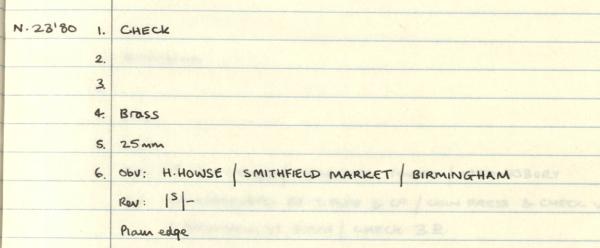 N.23'80 1. CHECK
2.
3.
4. Brass
5. 25mm
6. Obv: H.HOWSE / SMITHFIELD MARKET / BIRMINGHAM
Rev: |S|-
Plain edge